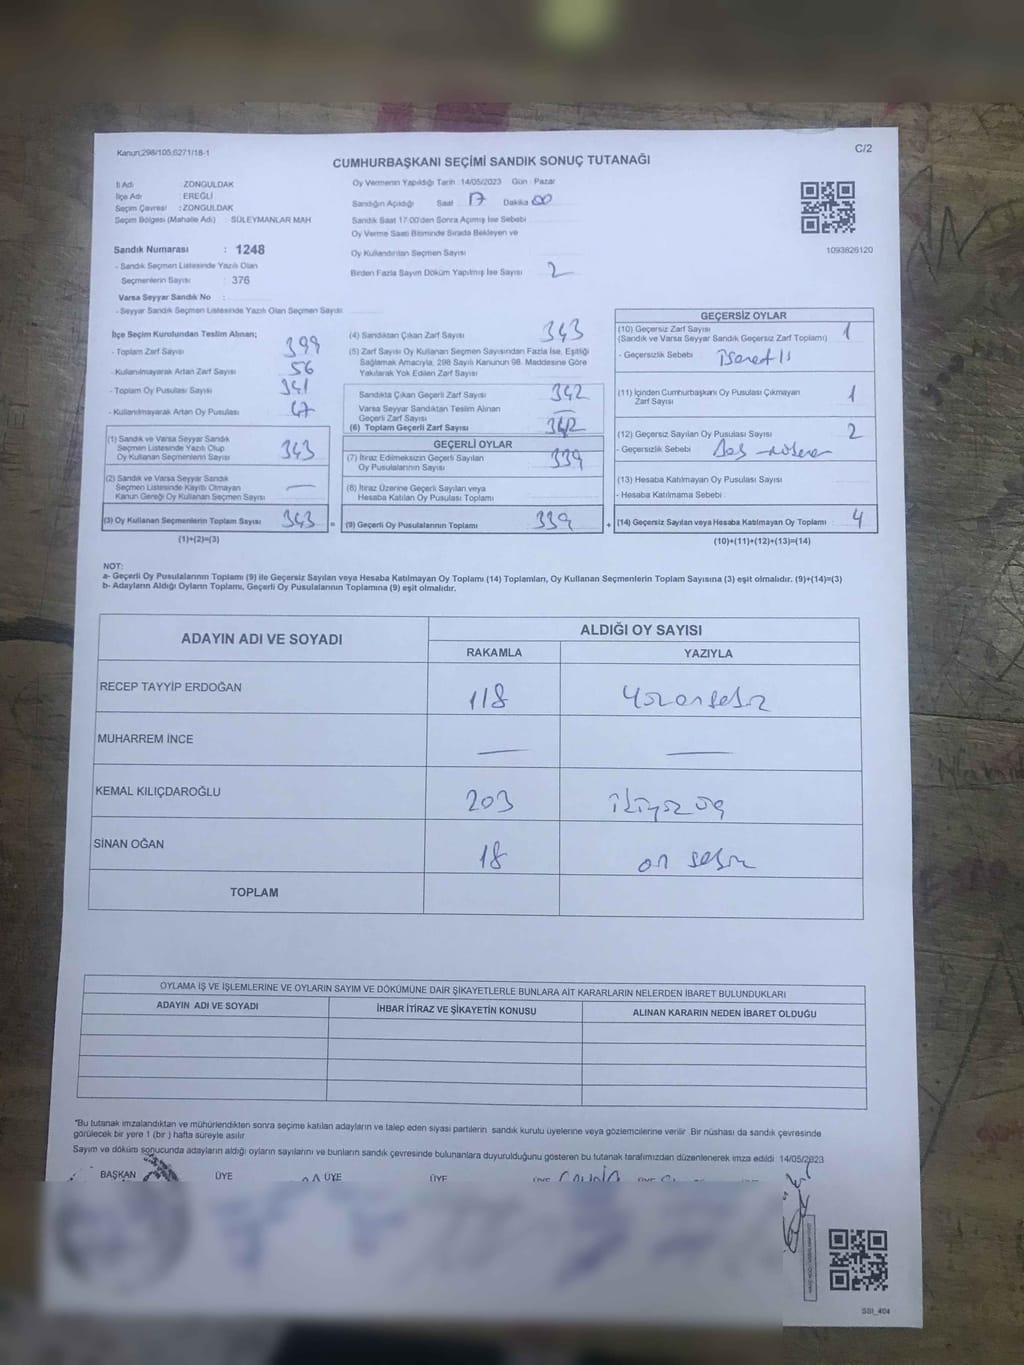 Kanun;298/105;6271/18-1
C/2
CUMHURBAŞKANI SEÇİMİ SANDIK SONUÇ TUTANAĞI
İl Adı : ZONGULDAK
İlçe Adı : EREĞLİ
Seçim Çevresi : ZONGULDAK
Seçim Bölgesi (Mahalle Adı) : SÜLEYMANLAR MAH
Oy Vermenin Yapıldığı Tarih :14/05/2023 Gün : Pazar
Sandığın Açıldığı Saat : 17 Dakika 00
Sandık Saat 17:00'den Sonra Açımış İse Sebebi
Oy Verme Saati Bitiminde Sırada Bekleyen ve
Oy Kullandırılan Seçmen Sayısı
Birden Fazla Sayım Döküm Yapılmış İse Sayısı 2
1093826120
Sandık Numarası : 1248
- Sandık Seçmen Listesinde Yazılı Olan
Seçmenlerin Sayısı : 376
Varsa Seyyar Sandık No :
- Seyyar Sandık Seçmen Listesinde Yazılı Olan Seçmen Sayısı:
İlçe Seçim Kurulundan Teslim Alınan;
- Toplam Zarf Sayısı 399
- Kullanılmayarak Artan Zarf Sayısı 56
- Toplam Oy Pusulası Sayısı
- Kullanılmayarak Artan Oy Pusulası 47
(1) Sandık ve Varsa Seyyar Sandık
Seçmen Listesinde Yazılı Olup
Oy Kullanan Seçmenlerin Sayısı 343
(2) Sandık ve Varsa Seyyar Sandık
Seçmen Listesinde Kayıtlı Olmayan
Kanun Gereği Oy Kullanan Seçmen Sayısı —
(3) Oy Kullanan Seçmenlerin Toplam Sayısı 343 =
(1)+(2)=(3)
(4) Sandıktan Çıkan Zarf Sayısı 343
(5) Zarf Sayısı Oy Kullanan Seçmen Sayısından Fazla İse, Eşitliği
Sağlamak Amacıyla, 298 Sayılı Kanunun 98. Maddesine Göre
Yakılarak Yok Edilen Zarf Sayısı
Sandıkta Çıkan Geçerli Zarf Sayısı 342
Varsa Seyyar Sandıktan Teslim Alınan
Geçerli Zarf Sayısı —
(6) Toplam Geçerli Zarf Sayısı 342
GEÇERLİ OYLAR
(7) İtiraz Edilmeksizin Geçerli Sayılan
Oy Pusulalarının Sayısı 339
(8) İtiraz Üzerine Geçerli Sayılan veya
Hesaba Katılan Oy Pusulası Toplamı
(9) Geçerli Oy Pusulalarının Toplamı 339 +
GEÇERSİZ OYLAR
(10) Geçersiz Zarf Sayısı
(Sandık ve Varsa Seyyar Sandık Geçersiz Zarf Toplamı) 1
- Geçersizlik Sebebi : işaretli
(11) İçinden Cumhurbaşkanı Oy Pusulası Çıkmayan
Zarf Sayısı 1
(12) Geçersiz Sayılan Oy Pusulası Sayısı 2
- Geçersizlik Sebebi :
(13) Hesaba Katılmayan Oy Pusulası Sayısı
- Hesaba Katılmama Sebebi :
(14) Geçersiz Sayılan veya Hesaba Katılmayan Oy Toplamı : 4
(10)+(11)+(12)+(13)=(14)
NOT:
a- Geçerli Oy Pusulalarının Toplamı (9) ile Geçersiz Sayılan veya Hesaba Katılmayan Oy Toplamı (14) Toplamları, Oy Kullanan Seçmenlerin Toplam Sayısına (3) eşit olmalıdır. (9)+(14)=(3)
b- Adayların Aldığı Oyların Toplamı, Geçerli Oy Pusulalarının Toplamına (9) eşit olmalıdır.
ADAYIN ADI VE SOYADI
ALDIĞI OY SAYISI
RAKAMLA YAZIYLA
RECEP TAYYİP ERDOĞAN 118 yüzonsekiz
MUHARREM İNCE — —
KEMAL KILIÇDAROĞLU 203 ikiyüz üç
SİNAN OĞAN 18 on sekiz
TOPLAM
OYLAMA İŞ VE İŞLEMLERİNE VE OYLARIN SAYIM VE DÖKÜMÜNE DAİR ŞİKAYETLERLE BUNLARA AİT KARARLARIN NELERDEN İBARET BULUNDUKLARI
ADAYIN ADI VE SOYADI İHBAR İTİRAZ VE ŞİKAYETİN KONUSU ALINAN KARARIN NEDEN İBARET OLDUĞU
*Bu tutanak imzalandıktan ve mühürlendikten sonra seçime katılan adayların ve talep eden siyasi partilerin sandık kurulu üyelerine veya gözlemcilerine verilir. Bir nüshası da sandık çevresinde
görülecek bir yere 1 (bir ) hafta süreyle asılır.
Sayım ve döküm sonucunda adayların aldığı oyların sayılarını ve bunların sandık çevresinde bulunanlara duyurulduğunu gösteren bu tutanak tarafımızdan düzenlenerek imza edildi. 14/05/2023
BAŞKAN ÜYE ÜYE ÜYE
SBI_404